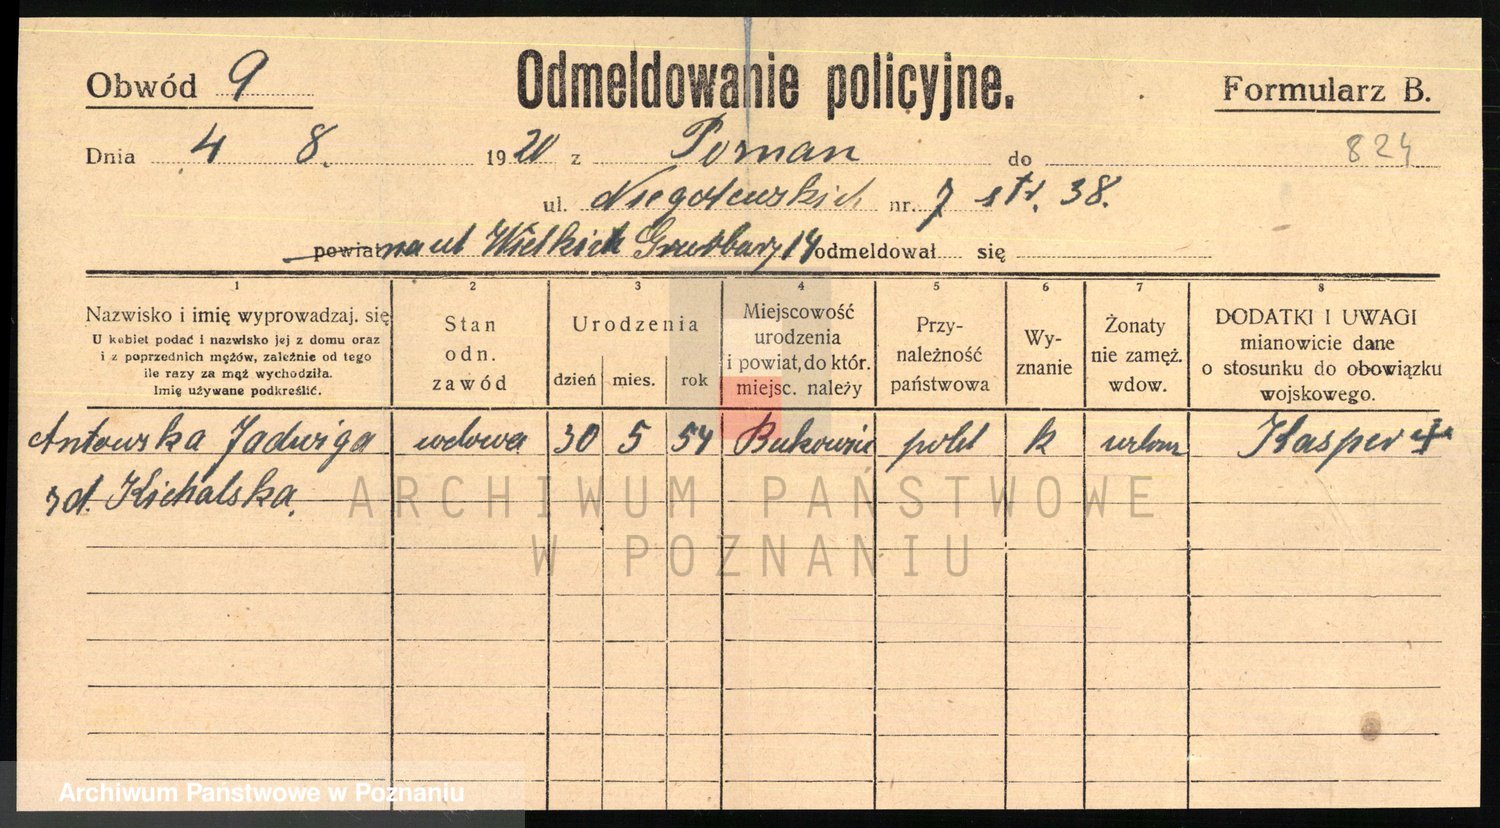 Obwód 9 Odmeldowanie policyjne. Formularz B.
Dnia 4 8. 1920 z Poznan do 824
ul. Niegolewskich nr. 7 str. 38.
powiat na ul Wielkich Garbary 14 odmeldował się
1 2 3 4 5 6 7 8
Nazwisko i imię wyprowadzaj. się
U kobiet podać i nazwisko jej z domu oraz
i z poprzednich mężów, zależnie od tego
ile razy za mąż wychodziła.
Imię używane podkreślić.
Stan
odn.
zawód
Urodzenia
dzień mies. rok
Miejscowość
urodzenia
i powiat, do któr.
miejsc. należy
Przy-
należność
państwowa
Wy-
znanie
Żonaty
nie zamęż.
wdow.
DODATKI I UWAGI
mianowicie dane
o stosunku do obowiązku
wojskowego.
Antowska Jadwiga wdowa 30 5 54 pols k wdow Kasper
zd. Kichalska
ARCHIWUM PAŃSTWOWE
W POZNANIU
Archiwum Państwowe w Poznaniu